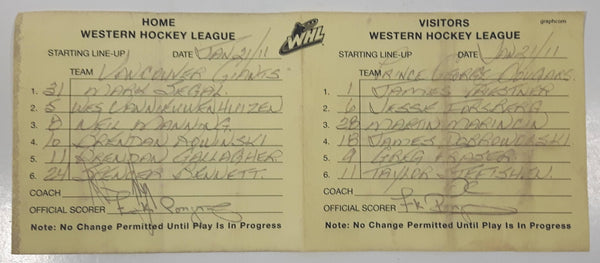 HOME
WESTERN HOCKEY LEAGUE
STARTING LINE-UP DATE JAN 21/11
TEAM VANCOUVER GIANTS
1. 31 MARK SEGAL
2. 5 WES VANNIEUWENHUIZEN
3. 8 NEIL MANNING
4. 10 BRENDAN ROWINSKI
5. 11 BRENDAN GALLAGHER
6. 24 SPENCER BENNETT
COACH
OFFICIAL SCORER
Note: No Change Permitted Until Play Is In Progress
WHL
graphcom
VISITORS
WESTERN HOCKEY LEAGUE
STARTING LINE-UP DATE JAN 21/11
TEAM PRINCE GEORGE COUGARS
1. 1 JAMES PRIESTNER
2. 6 JESSE FORSBERG
3. 28 MARTIN MARINCIN
4. 18 JAMES DOBROWOLSKI
5. 9 GREG FRASER
6. 11 TAYLOR STEFISHEN
COACH
OFFICIAL SCORER
Note: No Change Permitted Until Play Is In Progress